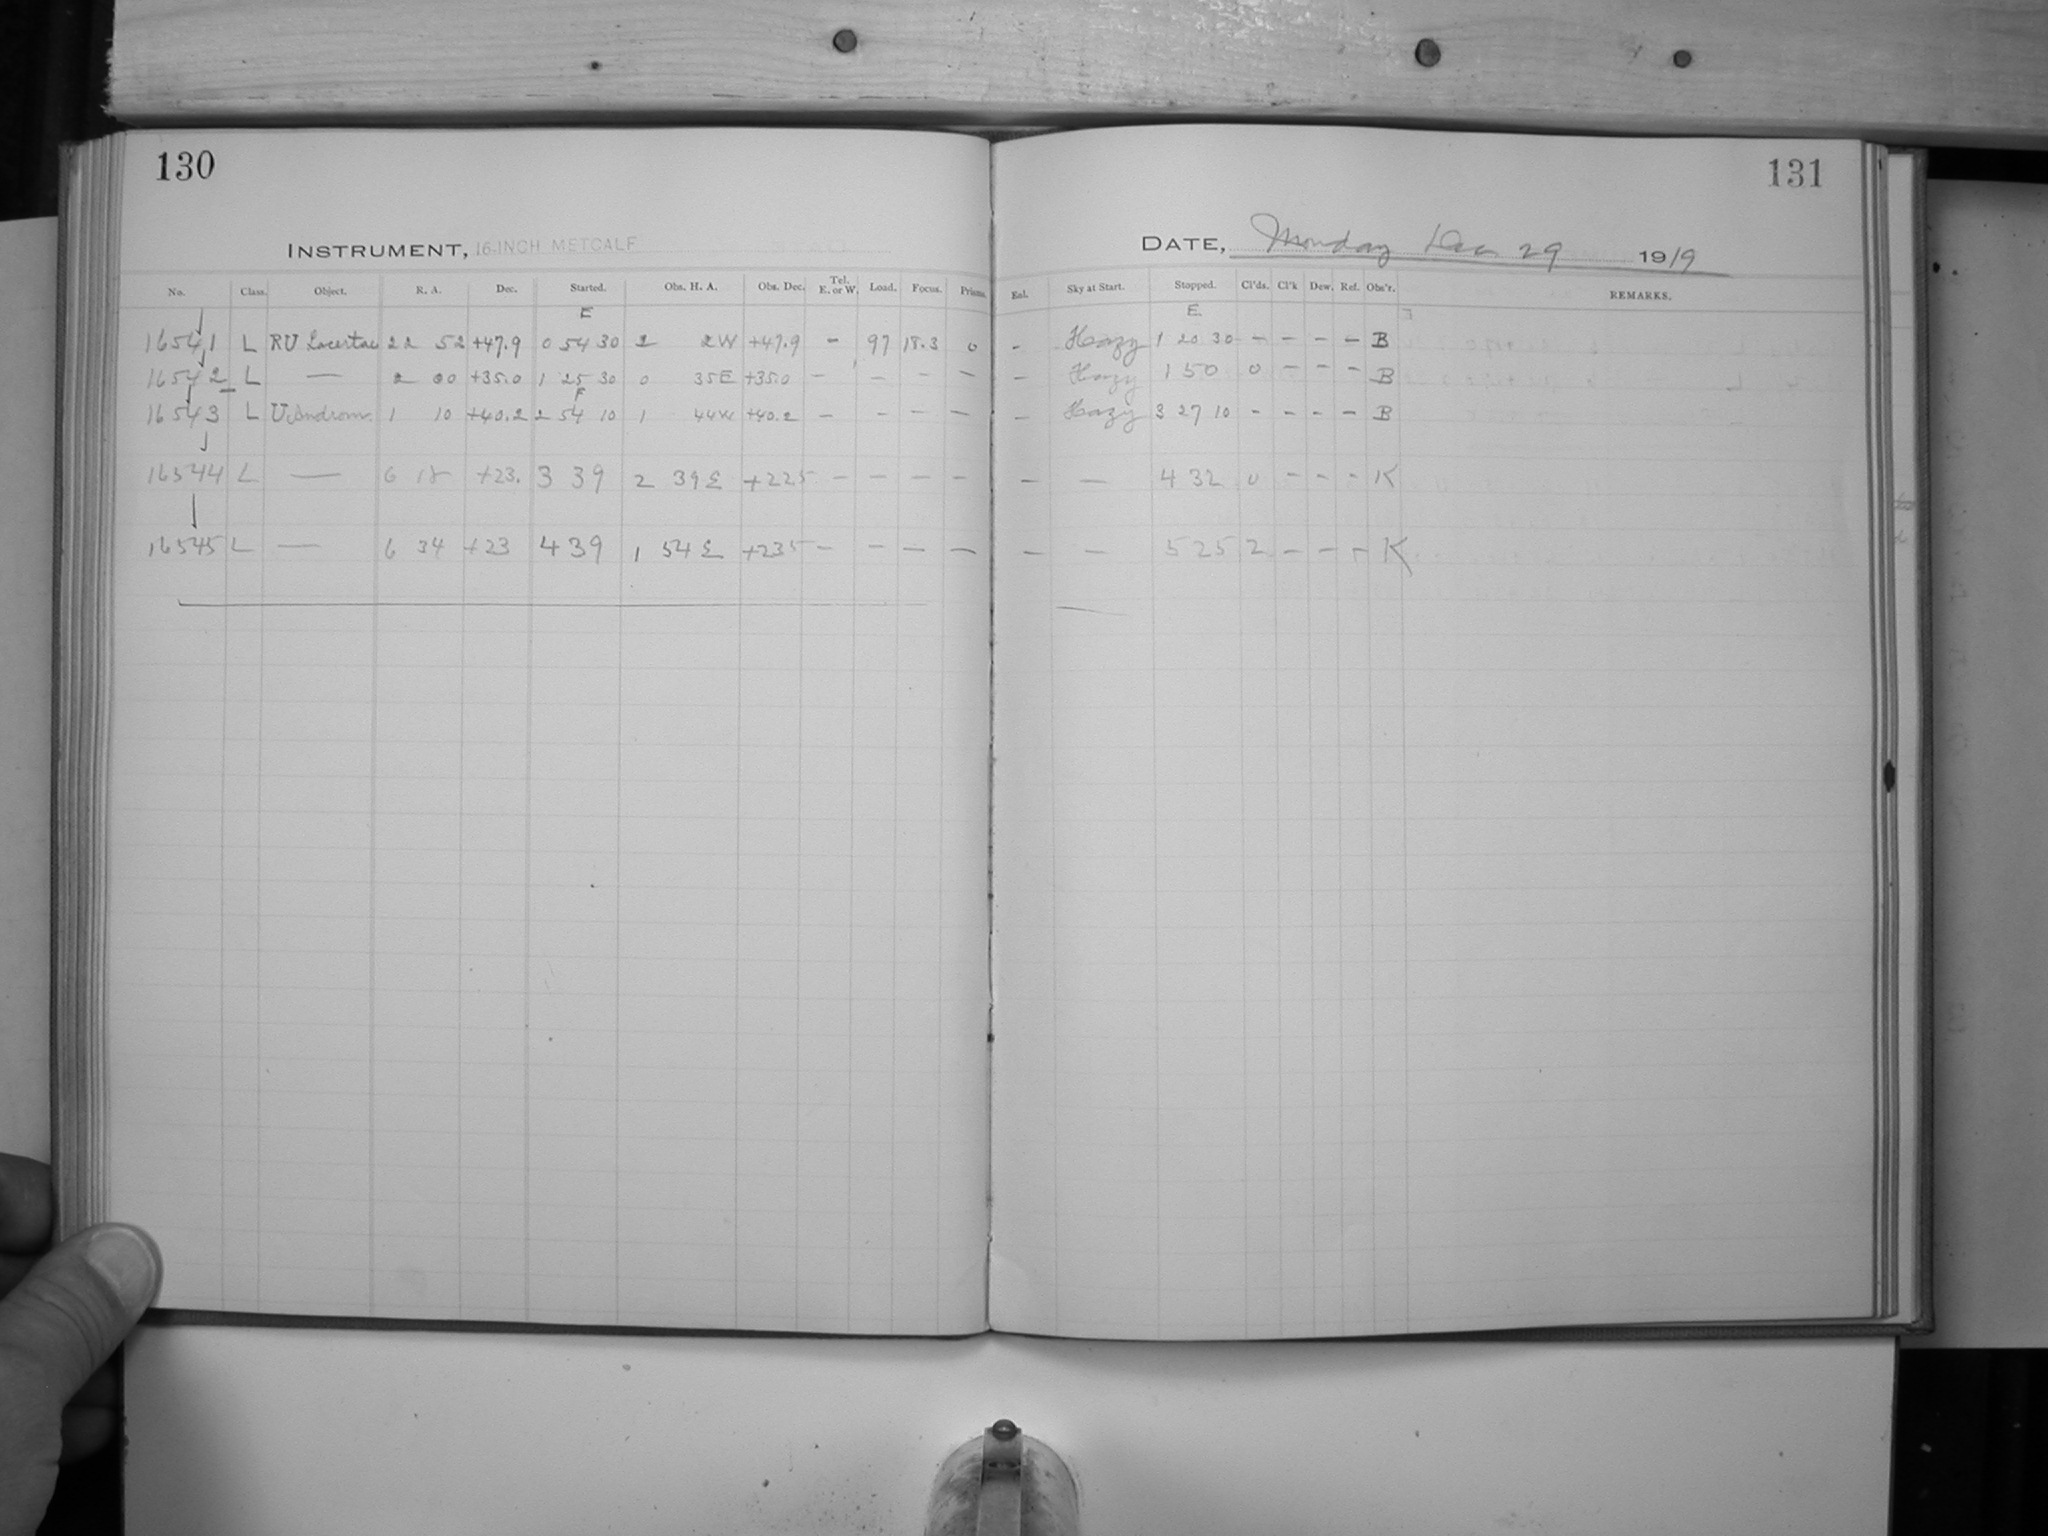 130
INSTRUMENT, 16-INCH METCALF
No. Class. Object. R. A. Dec. Started. Obs. H. A. Obs. Dec. Tel. E. or W. Load. Focus. Prisms.
E
16541 L RU Lacertae 22 52 +47.9 0 54 30 2 2W +47.9 - 97 18.3 0
16542 L — 2 00 +35.0 1 25 30 0 35E +35.0 - - - -
16543 L U Androm. 1 10 +40.2 2 54 10 1 44W +40.2 - - - -
16544 L — 6 18 +23. 3 39 2 39E +22.5 - - - -
16545 L — 6 34 +23 4 39 1 54E +23.5 - - - -
131
DATE, Monday Dec 29 1919
Enl. Sky at Start. Stopped. Cl'ds. Cl'k Dew. Ref. Obs'r. REMARKS.
E
- Hazy 1 20 30 - - - - B
- Hazy 1 50 0 - - - B
- Hazy 3 27 10 - - - - B
- — 4 32 0 - - - K
- — 5 25 2 - - - K